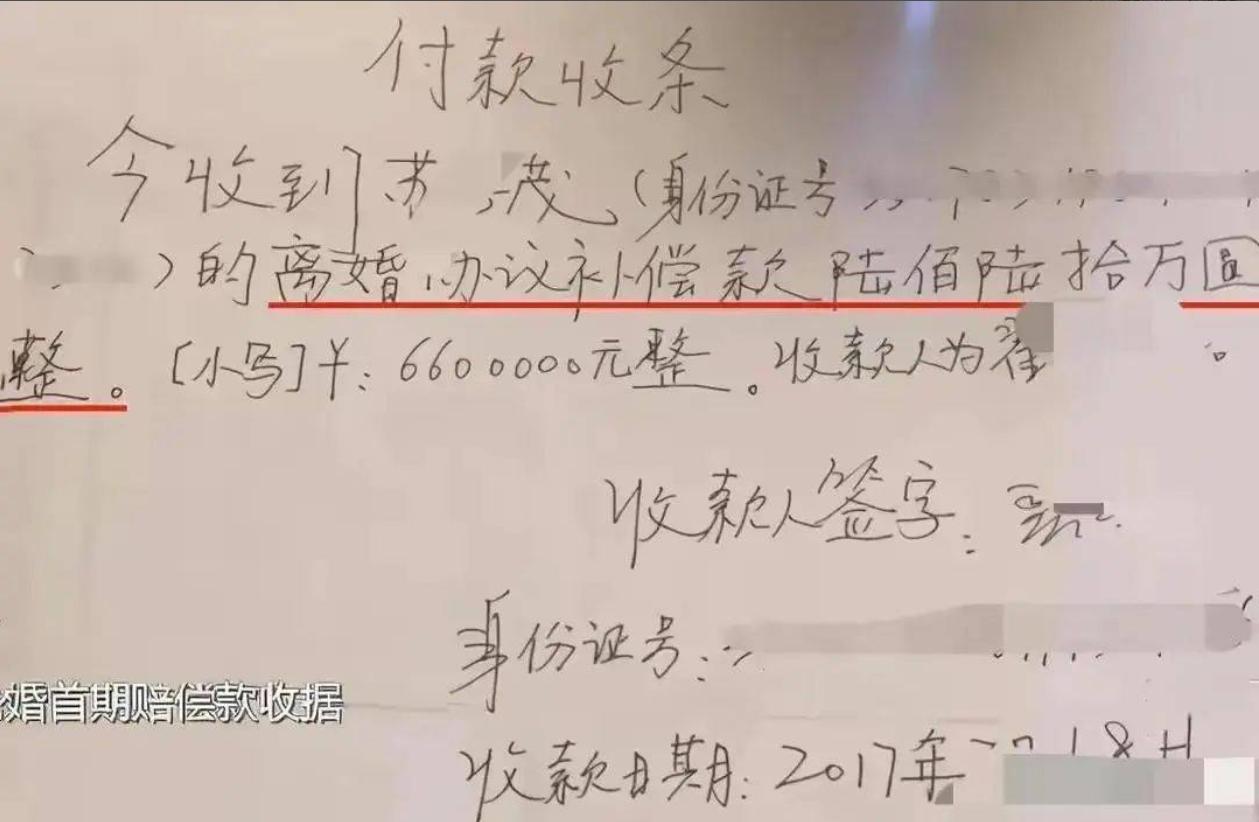 付款收条
今收到苏 茂(身份证号
)的离婚协议补偿款陆佰陆拾万圆
整。[小写]¥:6600000元整。收款人为翟 。
收款人签字:
身份证号:
婚首期赔偿款收据
收款日期:2017年 18日